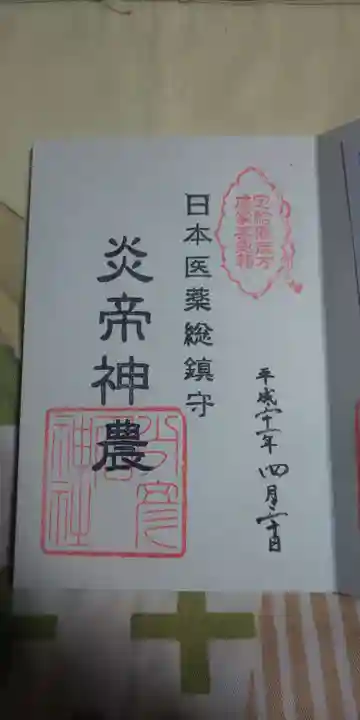 日本医薬総鎮守
炎帝神農
平成二十一年四月二十日
少彦名神社